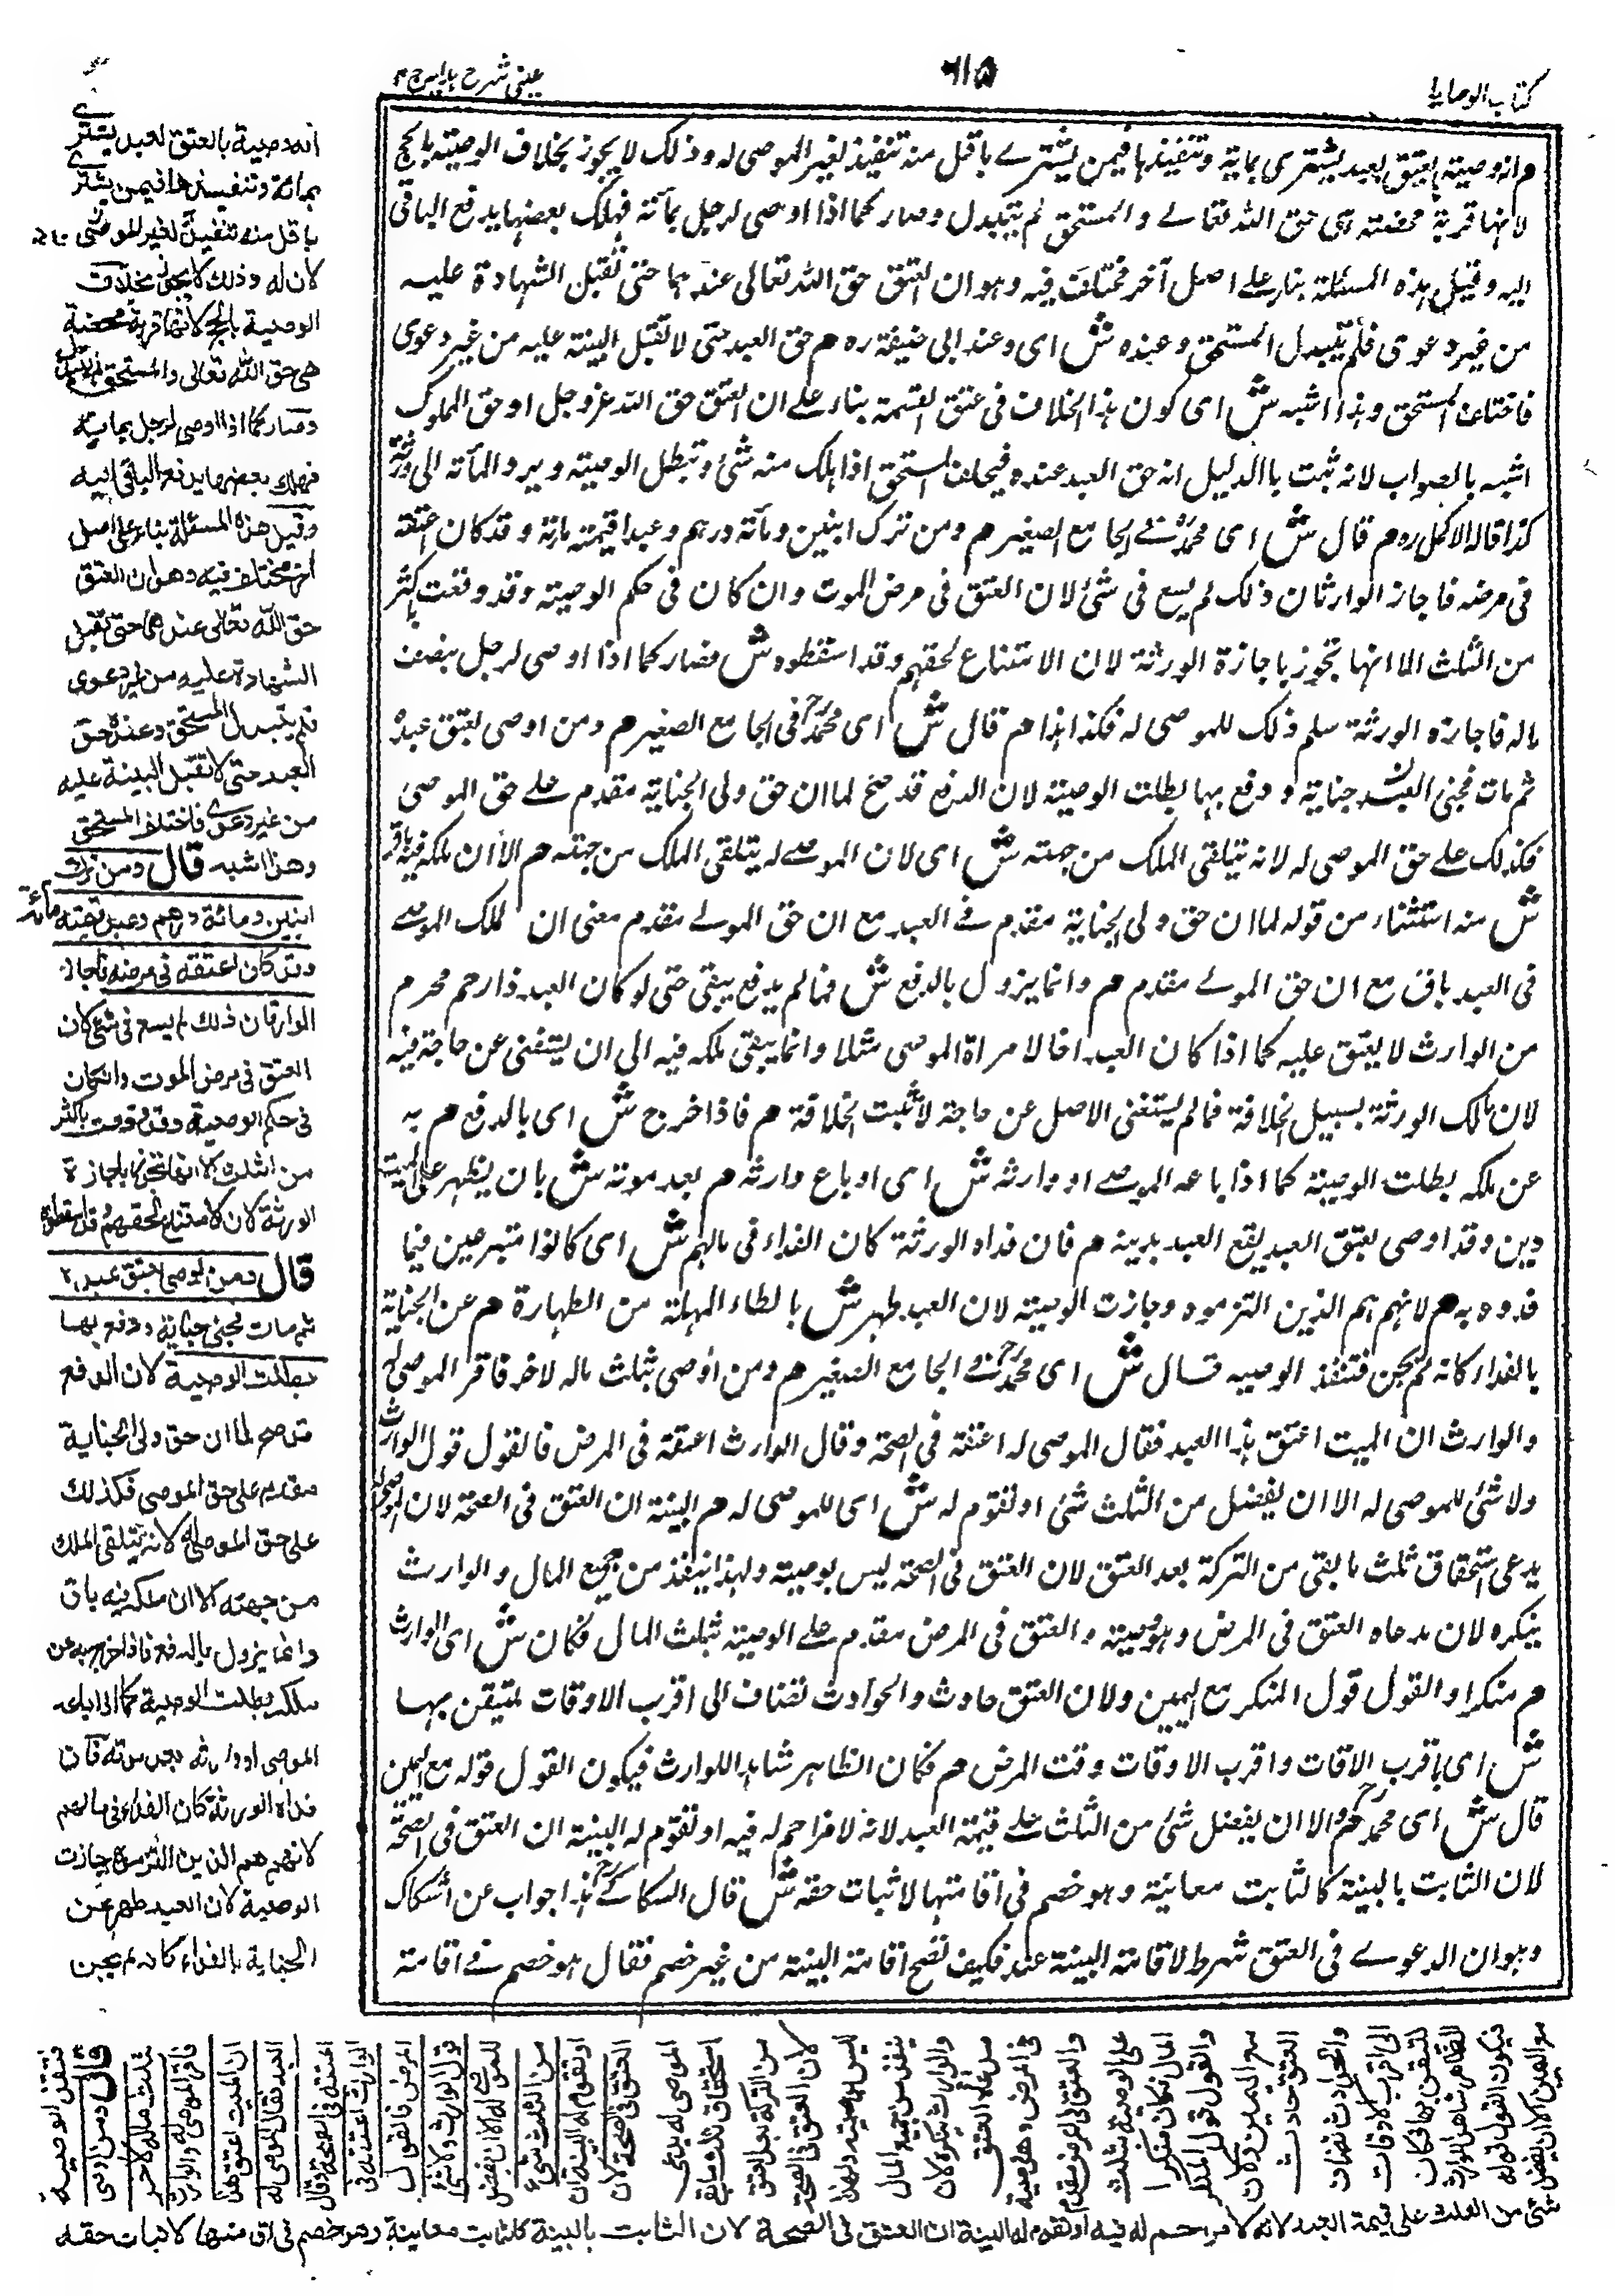 كتاب الوصايا
٦١٥
عینی شرح ہدایہ ج ٤
م انه وصية بعتق لعبد يشترى بمائة وتنفيذها فيمن يشترى باقل منه تنفيذ لغير الموصى له وذلك لا يجوز بخلاف الوصية بالحج
لانها قربة محضة هى حق الله تعالى والمستحق لم يتبدل وصار كما اذا اوصى لرجل بمائة فهلك بعضها يدفع الباقى
اليه وقيل هذه المسئلة بناء على اصل آخر مختلف فيه وهو ان العتق حق الله تعالى عندهما حتى تقبل الشهادة عليه
من غير دعوى فلم يتبدل المستحق وعنده ش اى وعند ابى حنيفة ره م حق العبد حتى لا تقبل البينة عليه من غير دعوى
فاختلف المستحق وهذا اشبه ش اى كون هذا الخلاف فى عتق القسمة بناء على ان العتق حق الله عز وجل او حق المملوك
اشبه بالصواب لانه ثبت بالدليل انه حق العبد عنده فيختلف المستحق اذا هلك منه شئ وتبطل الوصية ويرد المأئة الى ورثته
كذا قاله الاكمل ره م قال ش اى محمد فى الجامع الصغير م ومن ترك ابنين ومأئة درهم وعبدا قيمته مائة وقد كان اعتقه
فى مرضه فاجاز الوارثان ذلك لم يسع فى شئ لان العتق فى مرض الموت وان كان فى حكم الوصية وقد وقعت باكثر
من الثلث الا انها تجوز باجازة الورثة لان الامتناع لحقهم وقد اسقطوه ش فصار كما اذا اوصى لرجل بنصف
ماله فاجازه الورثة سلم ذلك للموصى له فكذا هذا م قال ش اى محمد فى الجامع الصغير م ومن اوصى بعتق عبده
ثم مات فجنى العبد جناية ودفع بها بطلت الوصية لان الدفع قد صح لما ان حق ولى الجناية مقدم على حق الموصى
فكذلك على حق الموصى له لانه يتلقى الملك من جهته ش اى لان الموصى له يتلقى الملك من جهته م الا ان ملكه فيه باق
ش منه استثناء من قوله لما ان حق ولى الجناية مقدم فى العبد مع ان حق المولى مقدم معنى ان ملك الموصى
فى العبد باق مع ان حق المولى مقدم م وانما يزول بالدفع ش فما لم يدفع يبقى حتى لو كان العبد ذا رحم محرم
من الوارث لا يعتق عليه كما اذا كان العبد اخا لامراة الموصى مثلا وانما يبقى ملكه فيه الى ان يستغنى عن حاجة فيه
لان ملك الورثة بسبيل الخلافة فما لم يستغنى الاصل عن حاجة لا تثبت الخلافة م فاذا خرج ش اى بالدفع م به
عن ملكه بطلت الوصية كما اذا باعه الموصى او وارثه ش اى او باع وارثه م بعد موته ش بان يظهر على الميت
دين وقد اوصى بعتق العبد يقع العبد بدينه م فان فداه الورثة كان الفداء فى مالهم ش اى كانوا متبرعين فيما
فدوه به م لانهم هم الذين التزموه وجازت الوصية لان العبد طهر ش بالطاء المهملة من الطهارة م عن الجناية
بالفداء كانه لم يجن فتنفذ الوصية قال ش اى محمد فى الجامع الصغير م ومن اوصى بثلث ماله لاخر فاقر الموصى له
والوارث ان الميت اعتق هذا العبد فقال الموصى له اعتقه فى الصحة وقال الوارث اعتقه فى المرض فالقول قول الوارث
ولا شئ للموصى له الا ان يفضل من الثلث شئ او تقوم له ش اى للموصى له م البينة ان العتق فى الصحة لان الموصى له
يدعى استحقاق ثلث ما بقى من التركة بعد العتق لان العتق فى الصحة ليس بوصية ولهذا ينفذ من جميع المال والوارث
ينكره لان مدعاه العتق فى المرض وهو وصية والعتق فى المرض مقدم على الوصية بثلث المال فكان ش اى الوارث
م منكرا والقول قول المنكر مع اليمين ولان العتق حادث والحوادث تضاف الى اقرب الاوقات للتيقن بها
ش اى باقرب الاقات واقرب الاوقات وقت المرض م فكان الظاهر شاهدا للوارث فيكون القول قوله مع اليمين
قال ش اى محمد م والا ان يفضل شئ من الثلث على قيمة العبد لانه لا مزاحم له فيه او تقوم له البينة ان العتق فى الصحة
لان الثابت بالبينة كالثابت معاينة وهو خصم فى اقامتها لاثبات حقه ش قال السكاكى هذا جواب عن اشكال
وهو ان الدعوى فى العتق شرط لاقامة البينة عنده فكيف تصح اقامة البينة من غير خصم فقال هو خصم فى اقامة
انه وصية بالعتق لعبد يشترى
بمائة وتنفيذها فيمن يشترى
باقل منه تنفيذ لغير الموصى
لان له وذلك لا يجوز بخلاف
الوصية بالحج لانها قربة محضة
هى حق الله تعالى والمستحق لم يتبدل
وصار كما اذا اوصى لرجل بمائة
فهلك بعضها يدفع الباقى اليه
وقيل هذه المسئلة بناء على اصل
اخر مختلف فيه وهو ان العتق
حق الله تعالى عندهما حتى تقبل
الشهادة عليه من غير دعوى
فلم يتبدل المستحق وعنده حق
العبد حتى لا تقبل البينة عليه
من غير دعوى فاختلف المستحق
وهذا اشبه قال ومن ترك
ابنين ومائة درهم وعبدا قيمته مائة
وقد كان اعتقه فى مرضه فاجاز
الوارثان ذلك لم يسع فى شئ لان
العتق فى مرض الموت وان كان
فى حكم الوصية وقد وقعت باكثر
من الثلث الا انها تجوز باجازة
الورثة لان الامتناع لحقهم وقد اسقطوه
قال ومن اوصى بعتق عبده
ثم مات فجنى جناية ودفع بها
بطلت الوصية لان الدفع
قد صح لما ان حق ولى الجناية
مقدم على حق الموصى فكذلك
على حق الموصى له لانه يتلقى الملك
من جهته الا ان ملكه فيه باق
وانما يزول بالدفع فاذا خرج به عن
ملكه بطلت الوصية كما اذا باعه
الموصى او وارثه بعد موته فان
فداه الورثة كان الفداء فى مالهم
لانهم هم الذين التزموه وجازت
الوصية لان العبد طهر عن
الجناية بالفداء كانه لم يجن
فتنفذ الوصية
قال ومن اوصى
بثلث ماله لاخر
فاقر الموصى له والوارث
ان الميت اعتق هذا
العبد فقال الموصى له
اعتقه فى الصحة وقال
الوارث اعتقه فى
المرض فالقول
قول الوارث ولا شئ
للموصى له الا ان يفضل
من الثلث شئ
او تقوم له البينة ان
العتق فى الصحة لان
الموصى له يدعى
استحقاق ثلث ما بقى
من التركة بعد العتق
لان العتق فى الصحة
ليس بوصية ولهذا
ينفذ من جميع المال
والوارث ينكره لان
مدعاه العتق
فى المرض وهو وصية
والعتق فى المرض مقدم
على الوصية بثلث
المال فكان منكرا
والقول قول المنكر
مع اليمين ولان
العتق حادث
والحوادث تضاف
الى اقرب الاوقات
للتيقن بها فكان
الظاهر شاهدا للوارث
فيكون القول قوله
مع اليمين الا ان يفضل
شئ من الثلث على قيمة العبد لانه لا مزاحم له فيه او تقوم له البينة ان العتق فى الصحة لان الثابت بالبينة كالثابت معاينة وهو خصم فى اقامتها لاثبات حقه